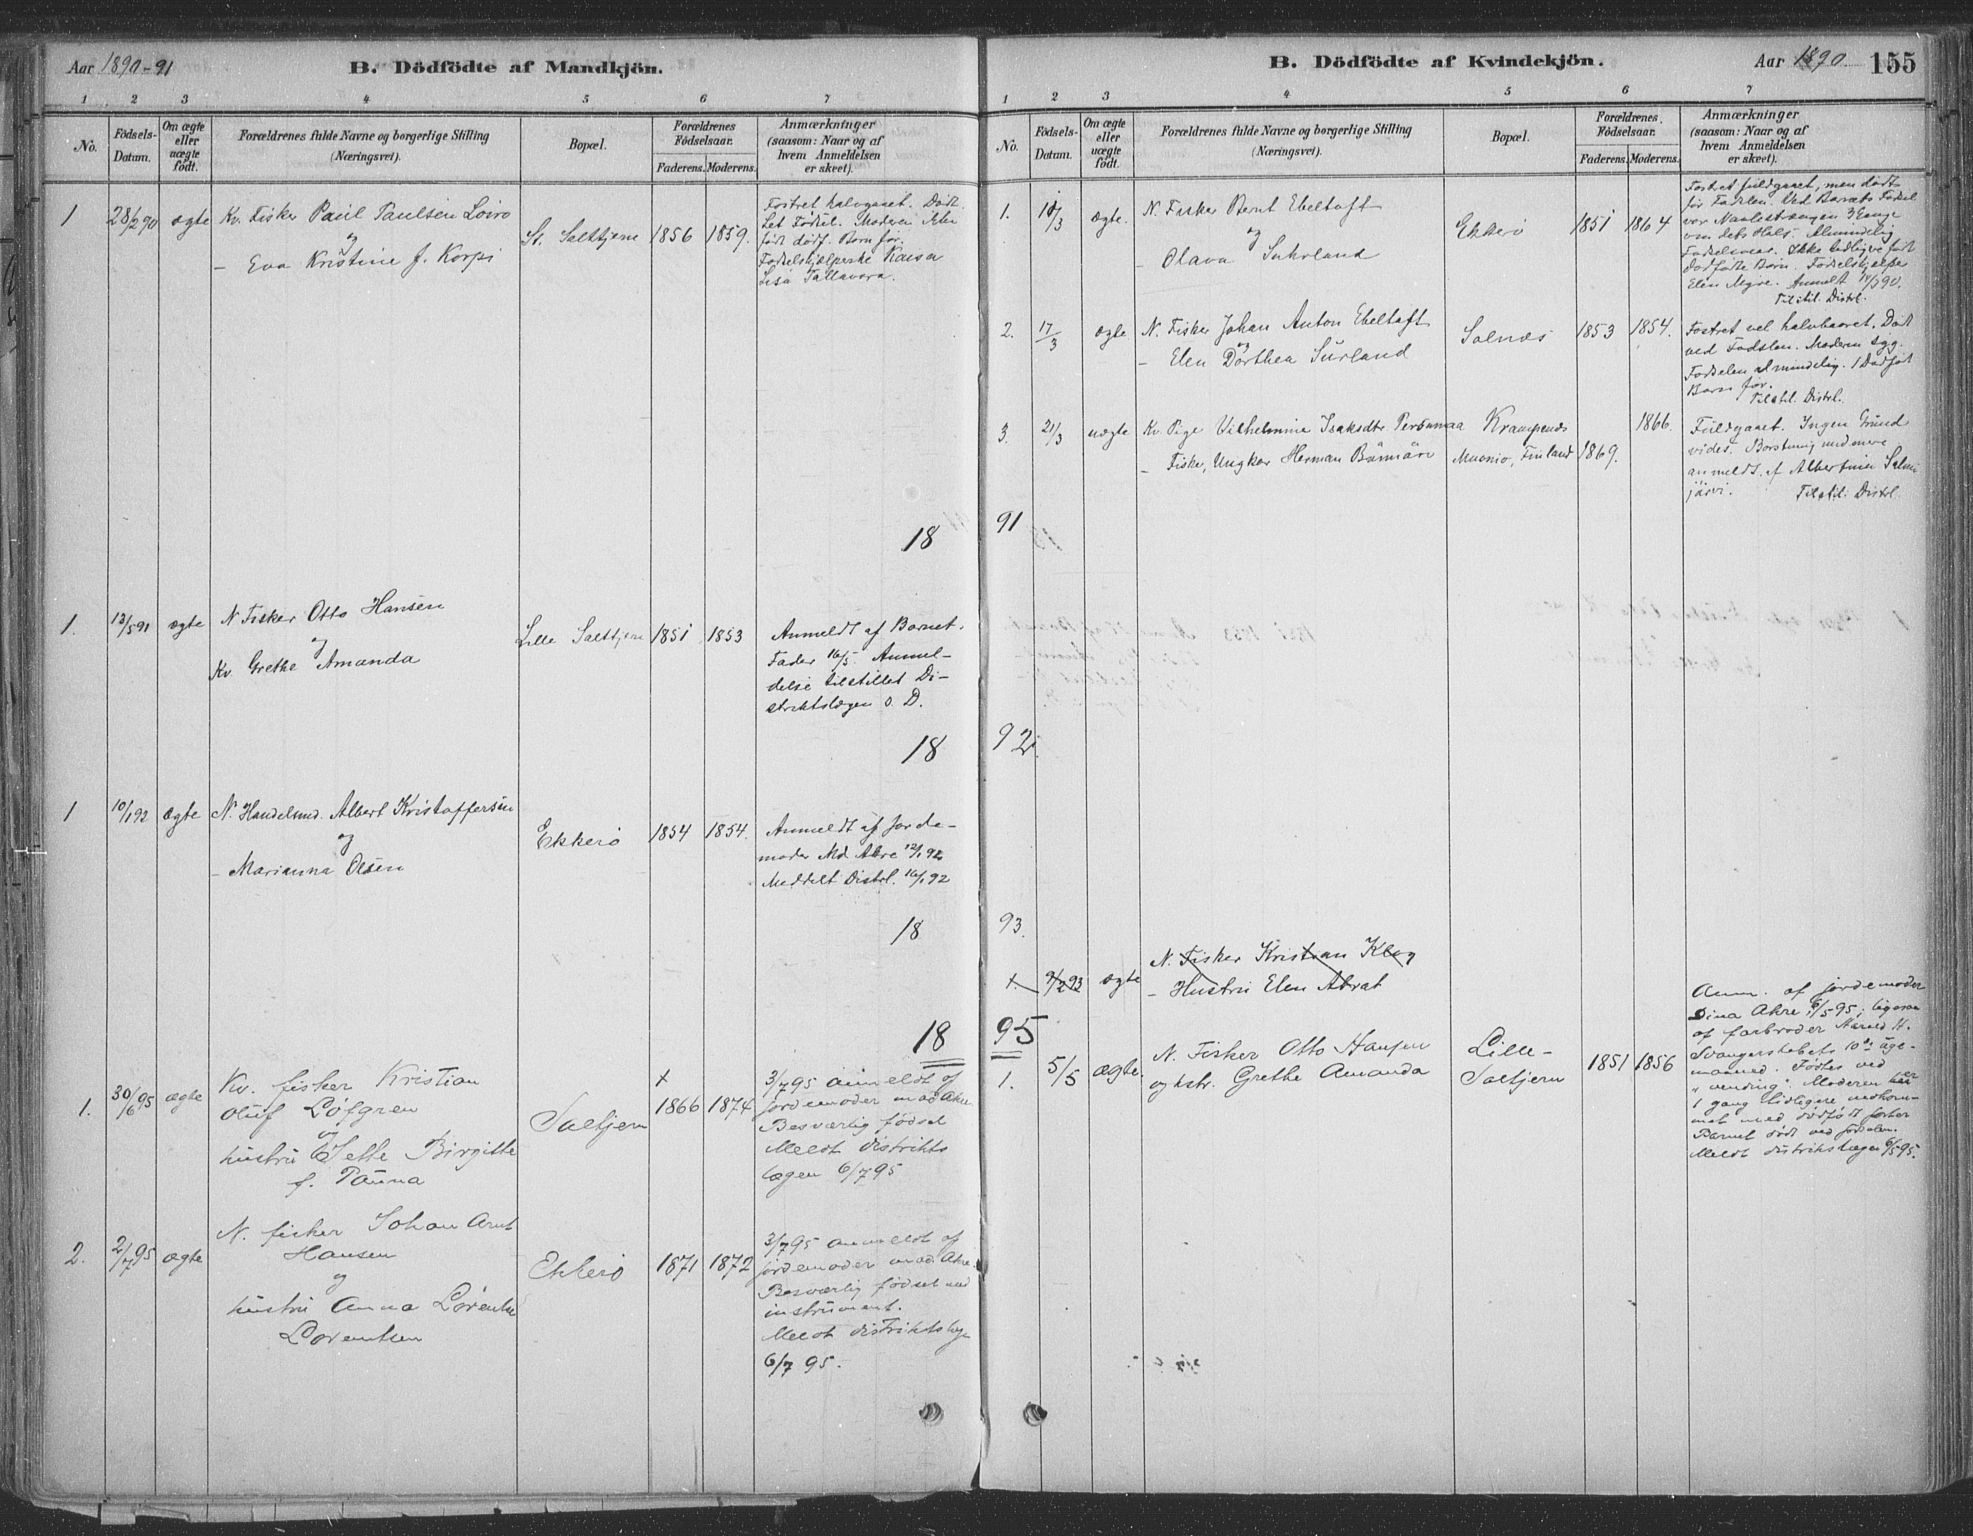 Aar 1890-91
B. Dödfödte af Mandkjön.
1 2 3 4 5 6 7
No.
Födsels-
Datum.
Om ægte
eller
uægte
födt.
Forældrenes fulde Navne og borgerlige Stilling
(Næringsvei).
Bopæl.
Forældrenes
Födselsaar.
Faderens. Moderens.
Anmærkninger
(saasom: Naar og af
hvem Anmeldelsen
er skeet).
1 28/2 90 ægte Kv. Fisker Paul Paulsen Loiro
og
– Eva Kristine f. Korpi
St. Saltjern 1856 1859.
Fostret halvgaaet. Død.
Let Fødsel. Moderen ikke
født dødf. Born før.
Fødselshjælperske Kaisa
Lisa Tallavara.
18
1. 13/5 91 ægte N Fisker Otto Hansen
og
Kv Grethe Amanda
Lille Saltjern 1851 1853
Anmeldt af Barnets
Fader 16/5. Anmel-
delse tilstillet Di-
striktslægen s. D.
18
1 10/1 92 ægte N. Handelsmd. Albert Kristoffersen
og
– Marianna Olsen
Ekkerö 1854 1854.
Anmeldt af Jorde-
moder Md Akre 12/1 92
Meddelt Distrl. 16/1 92
18
18
1. 30/6 95 ægte Kv. fisker Kristian
Oluf Løfgren
og
hustru Sette Birgitte
f. Pauna
Saltjern
x
1866 1874
3/7 95 anmeldt af
jordemoder mad. Akre
Besværlig fødsel
Meldt distrikts
lægen 6/7 95
2. 2/7 95 ægte N. fisker Johan Arnt
Hansen
og
hustru Anna Lorentse
Lorentsen
Ekkerö 1871 1872
3/7 95 anmeldt af
jordemoder mad. Akre.
Besværlig fødsel med
instrument.
Meldt distriktslæge
6/7 95.
B. Dödfödte af Kvindekjön.
Aar 1890. 155
1 2 3 4 5 6 7
No.
Födsels-
Datum.
Om ægte
eller
uægte
födt.
Forældrenes fulde Navne og borgerlige Stilling
(Næringsvei).
Bopæl.
Forældrenes
Födselsaar.
Faderens. Moderens.
Anmærkninger
(saasom: Naar og af
hvem Anmeldelsen
er skeet).
1. 10/3 ægte. N. Fisker Bernt Ebeltoft
og
– Olava Suhrland
Ekkerö 1851 1864
Fostret fuldgaaet, men dødt
før Fødslen. Ved Barnets Fødsel
var Navlestrængen 3 Gange
om dets Hals. Almindelig
Fødselsvear. Ikke tidligere født
dødfødte Børn. Fødselshjælper
Elen Mgre. Anmeldt
Tilstil. Distrl.
2. 17/3 ægte N. Fisker Johan Anton Ebeltoft
og
– Elen Dorthea Surland
Salnæs 1853 1854.
Fostret vel halvbaaret. Død
ved Fødslen. Moderen syg.
Fødselen almindelig. 1 Dødfødt
Barn før.
Tilstil. Distrl.
3. 21/3 uægte Kv. Pige Vilhelmine Isaksdtr. Personmaa Krampenæs 1866.
– Fisker, Ungkar Herman Bännäri Muonio, Finland 1869.
Fuldgaaet. Ingen Grund
vides. Borstung med mere
anmeldt af Albertine Salmi
järvi. Tilstil. Distrl.
91
92.
93.
1. 9/2 93 ægte N. Fisker Kristian Klog
– Hustru Elen Abrat
95
1. 5/5 ægte. N. Fisker Otto Hansen
og hstr. Grethe Amanda
Lille-
Saltjern
1851 1856
Anm. af jordemoder
Dina Akre, 6/5 95, ligesom
af farbroder Harald H.
Svangerskabets 10de uge-
maaned. Fødtes ved
"vending". Moderen har
1 gang tidligere nedkom-
met med dødfødt foster
Barnet dødt ved fødselen.
Meldt distriktslægen 6/5 95.